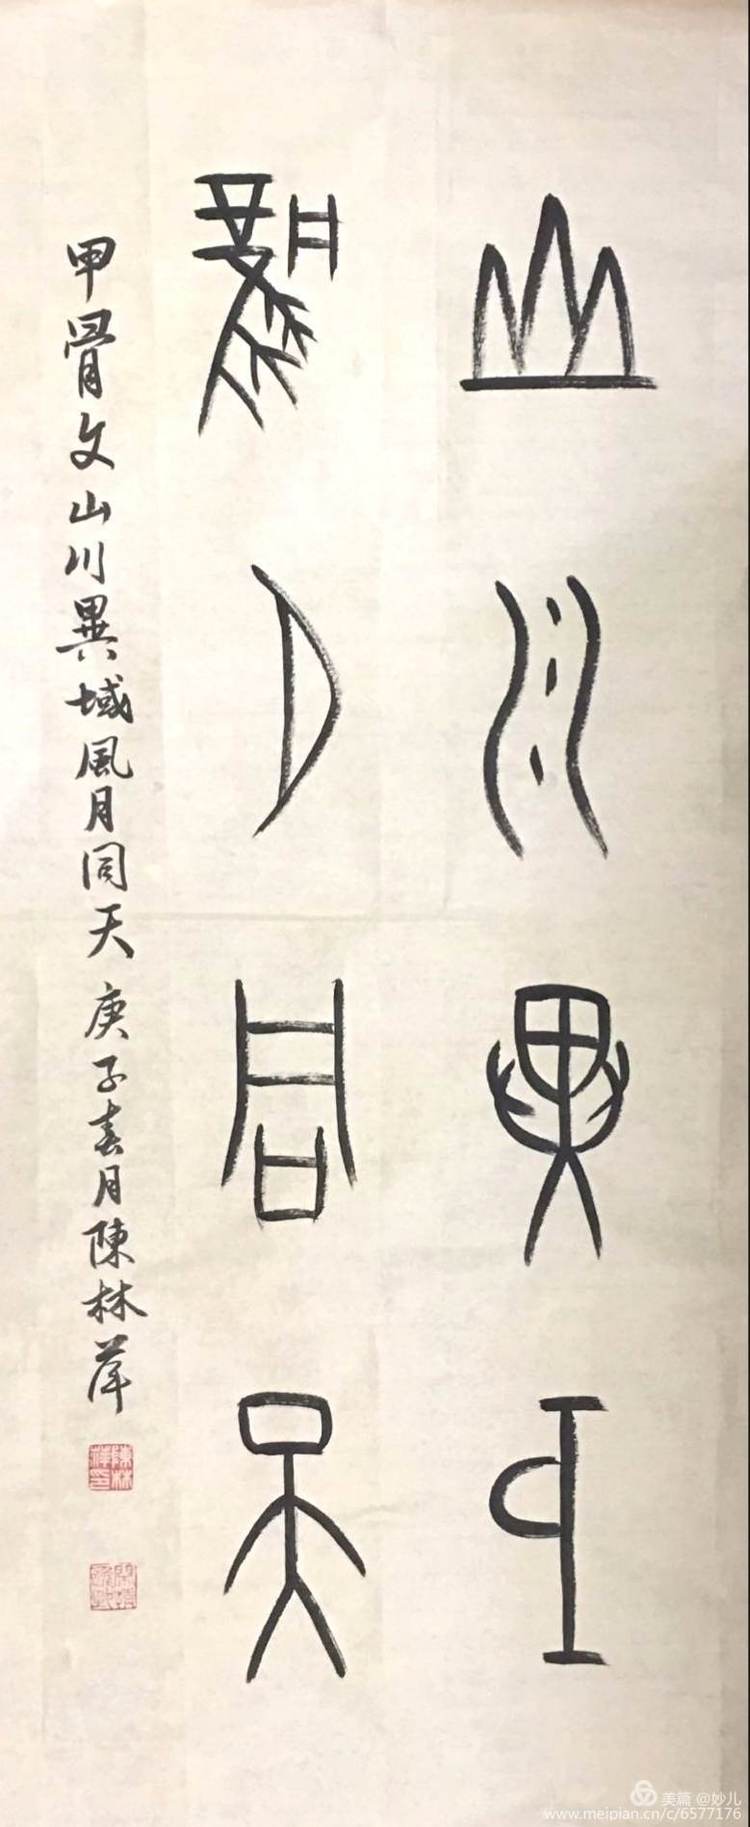 山川異域
風月同天
甲骨文山川異域風月同天庚子春月陳林萍
美篇 @妙儿
www.meipian.cn/c/6577176